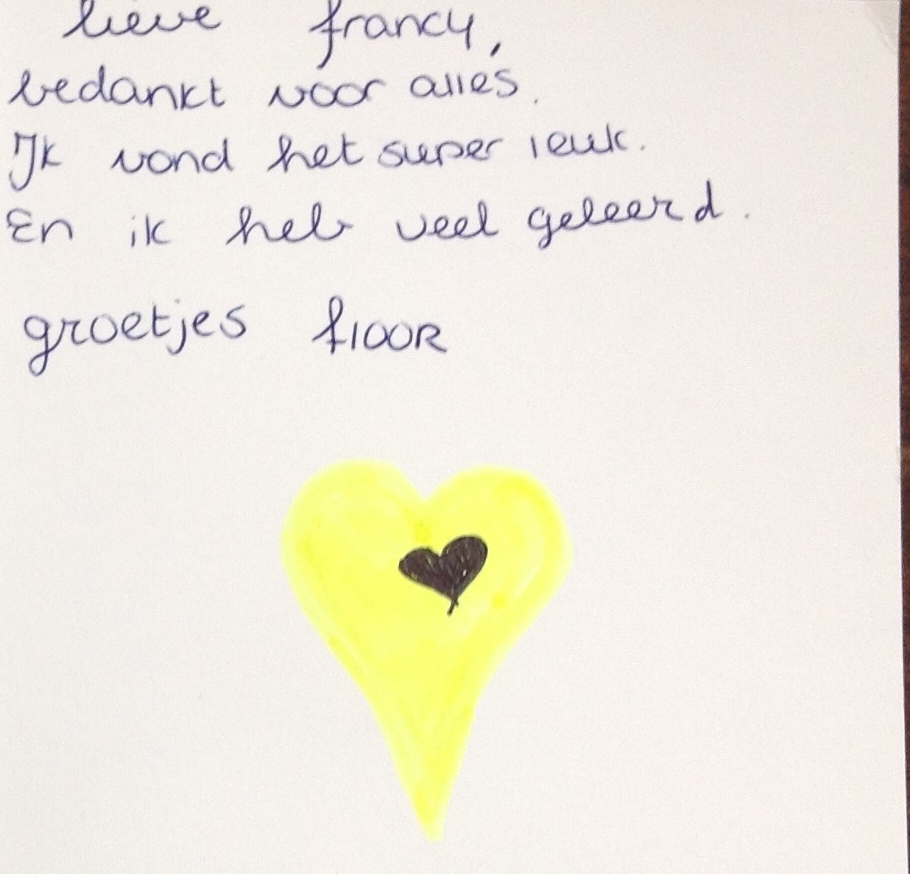 lieve francy,
bedankt voor alles.
Ik vond het super leuk.
En ik heb veel geleerd.
groetjes flooR